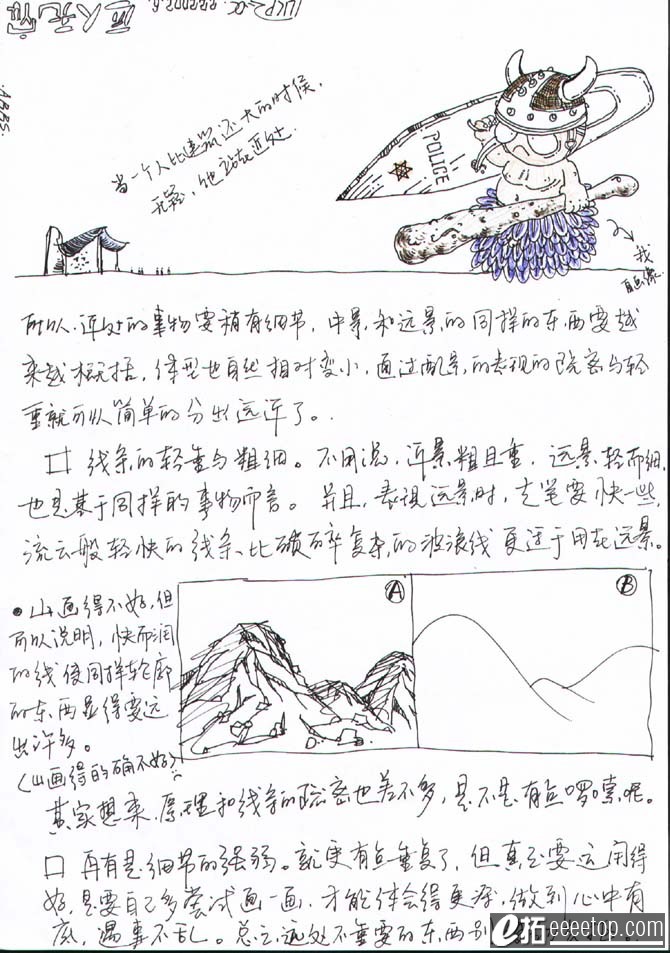 当一个人比建筑还大的时候,
无疑,他站在近处.
POLICE
我
自画像.
所以,近处的事物要稍有细节,中景和远景的同样的东西要越
来越概括,体型也自然相对变小,通过配景的表现的疏密与轻
重就可以简单的分出远近了。
口 线条的轻重与粗细。不用说,近景粗且重,远景轻而细,
也是基于同样的事物而言。并且,表现远景时,走笔要快一些,
流云般轻快的线条、比琐碎复杂的波浪线更适于用在远景。
● 山画得不好,但
可以说明,快而润
的线使同样轮廓
的东西显得要远
出许多。
(山画得的确不好)
A
B
其实想来,原理和线条的疏密也差不多,是不是有点啰嗦呢。
口 再有是细节的强弱。就更有点重复了,但真正要运用得
好,是要自己多尝试画一画,才能体会得更深,做到心中有
底,遇事不乱。总之,远处不重要的东西别
e拓 eeeetop.com